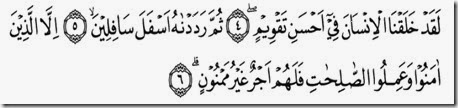 لَقَدْ خَلَقْنَا الْاِنْسَانَ فِيْٓ اَحْسَنِ تَقْوِيْمٍۖ ﴿٤﴾ ثُمَّ رَدَدْنٰهُ اَسْفَلَ سَافِلِيْنَۙ ﴿٥﴾ اِلَّا الَّذِيْنَ
اٰمَنُوْا وَعَمِلُوا الصّٰلِحٰتِ فَلَهُمْ اَجْرٌ غَيْرُ مَمْنُوْنٍۗ ﴿٦﴾